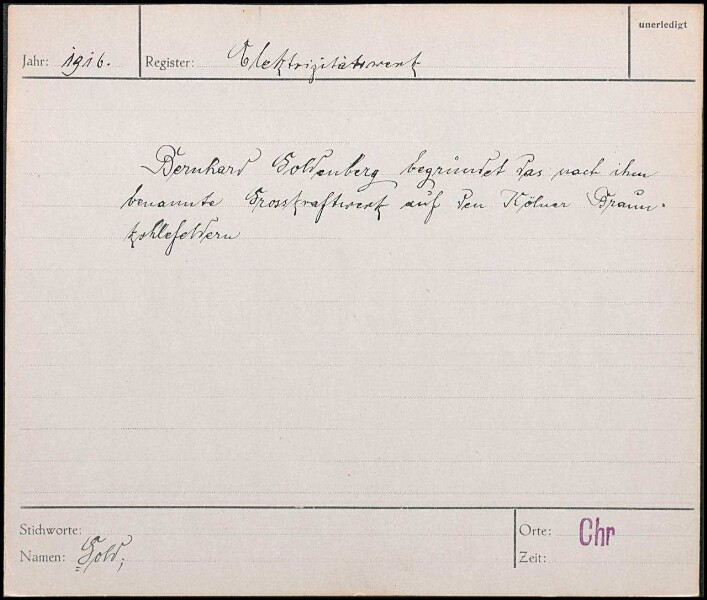 unerledigt
Jahr: 1916. Register: Elektrizitätswerk
Bernhard Goldenberg begründet das nach ihm
benannte Grosskraftwerk auf den Kölner Braun-
kohlefeldern
Stichworte:
Namen: Gold;
Orte: Chr
Zeit: